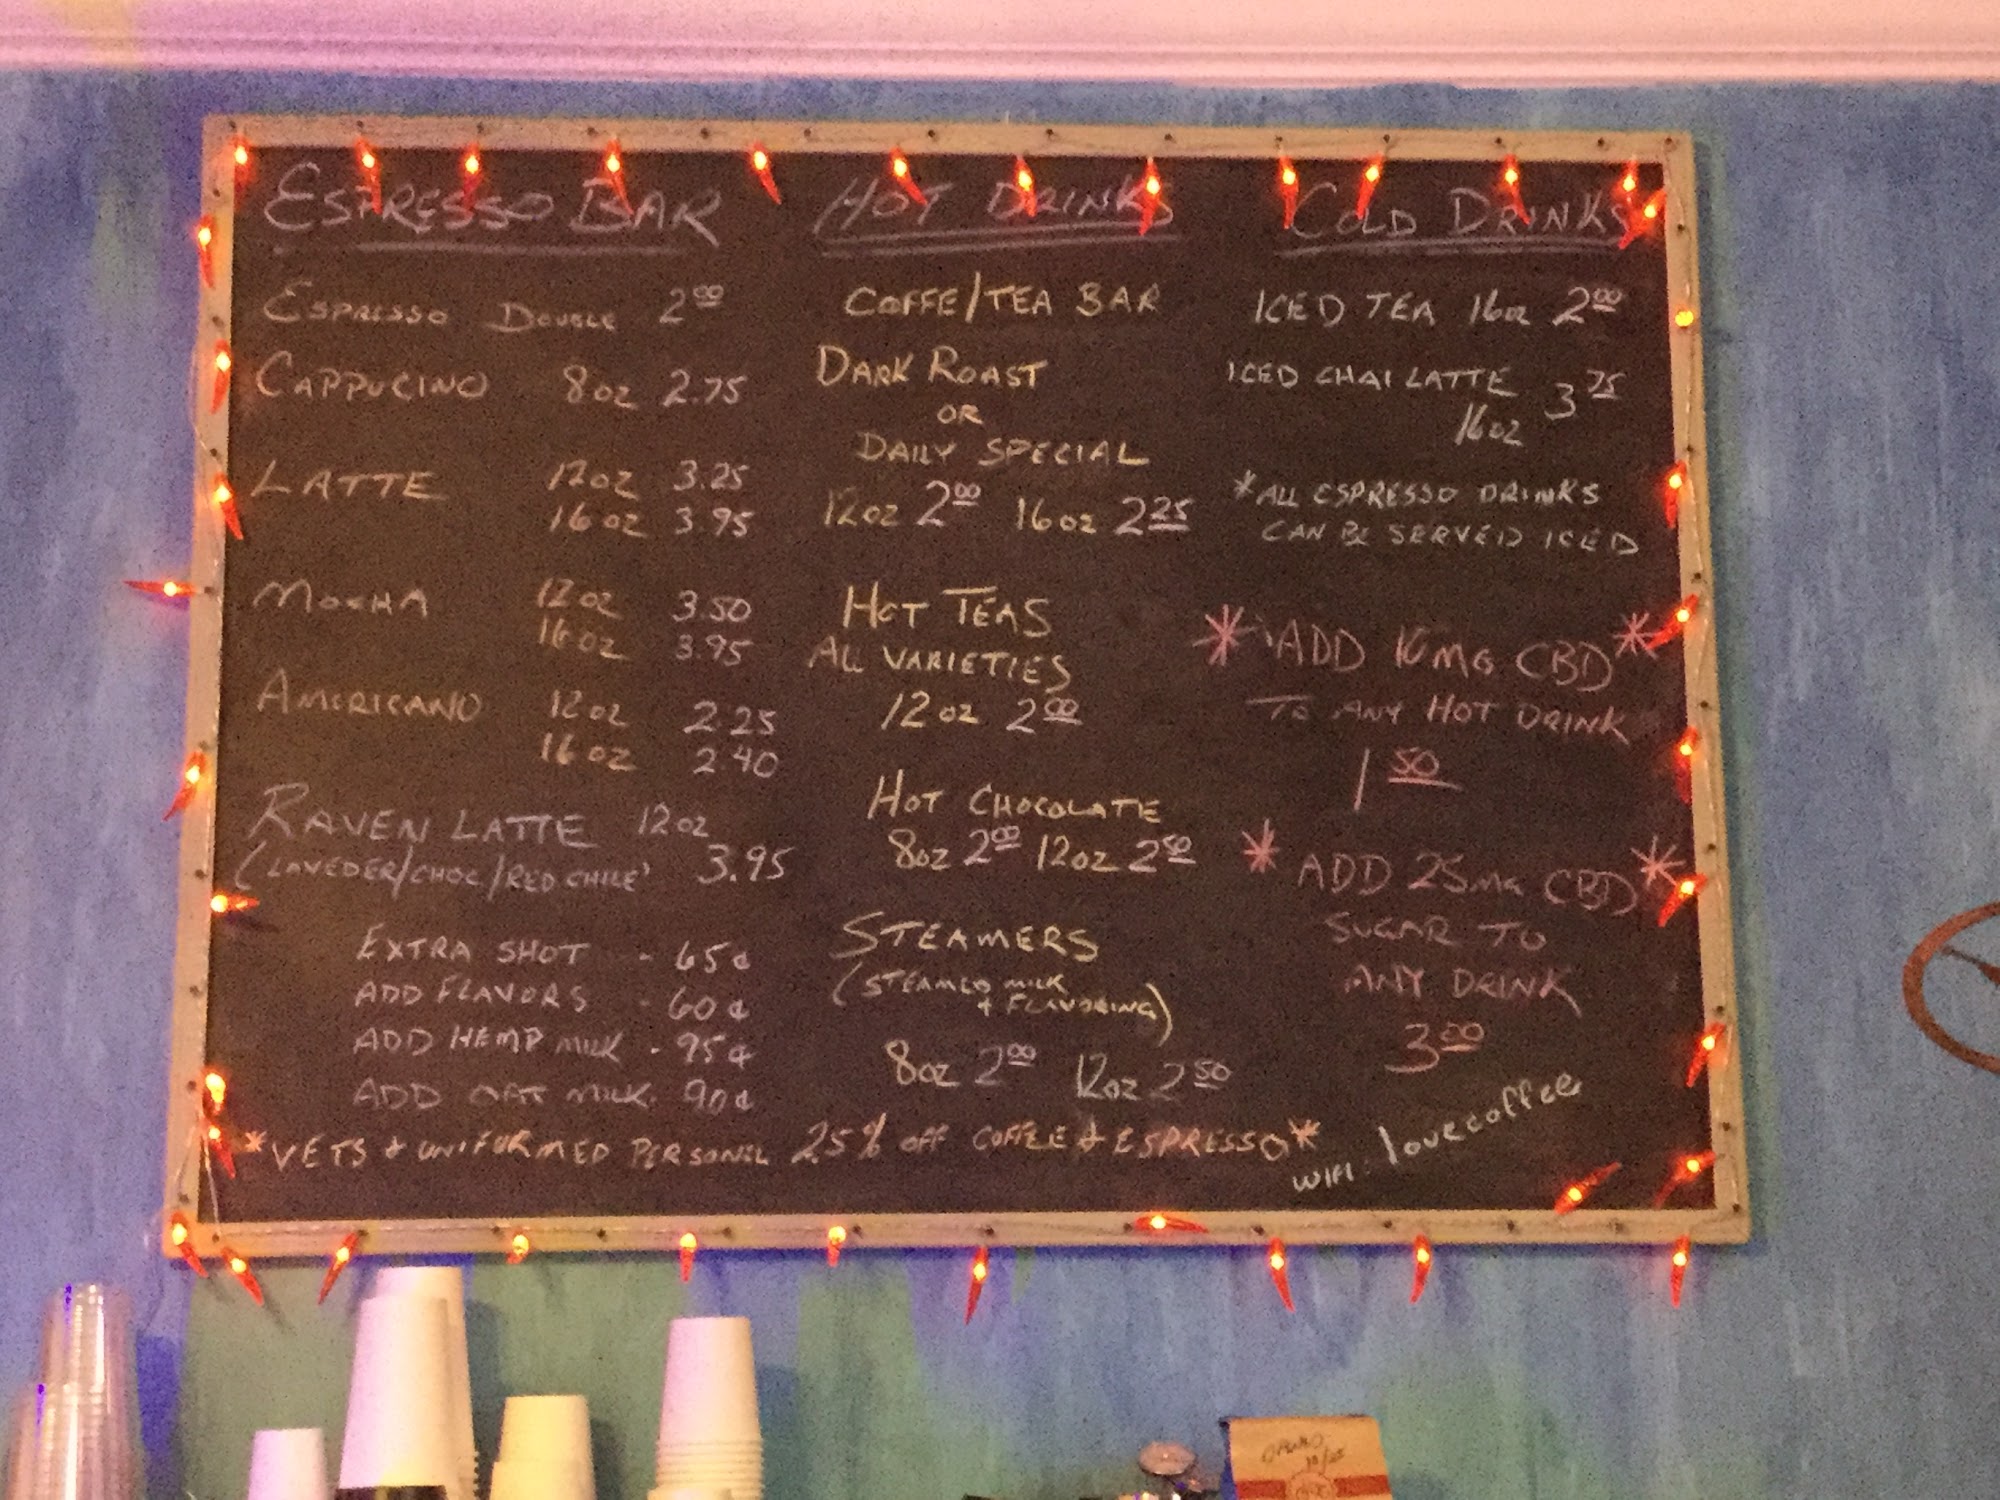 ESPRESSO BAR
ESPRESSO DOUBLE 2.00
CAPPUCINO 8oz 2.75
LATTE 12oz 3.25
16oz 3.95
MOCHA 12oz 3.50
16oz 3.95
AMERICANO 12oz 2.25
16oz 2.40
RAVEN LATTE 12oz
(LAVEDER/CHOC/RED CHILE) 3.95
EXTRA SHOT - 65¢
ADD FLAVORS - 60¢
ADD HEMP MILK - 95¢
ADD OAT MILK - 90¢
HOT DRINKS
COFFE/TEA BAR
DARK ROAST
OR
DAILY SPECIAL
12oz 2.00 16oz 2.25
HOT TEAS
ALL VARIETIES
12oz 2.00
HOT CHOCOLATE
8oz 2.00 12oz 2.50
STEAMERS
(STEAMED MILK
+ FLAVORING)
8oz 2.00 12oz 2.50
COLD DRINKS
ICED TEA 16oz 2.00
ICED CHAI LATTE 3.75
16oz
*ALL ESPRESSO DRINKS
CAN BE SERVED ICED
*ADD 10mg CBD*
TO ANY HOT DRINK
1.50
*ADD 25mg CBD*
SUGAR TO
ANY DRINK
3.00
*VETS + UNIFORMED PERSONEL 25% OFF COFFEE + ESPRESSO*
WIFI: lovecoffee
OPENED
10/25